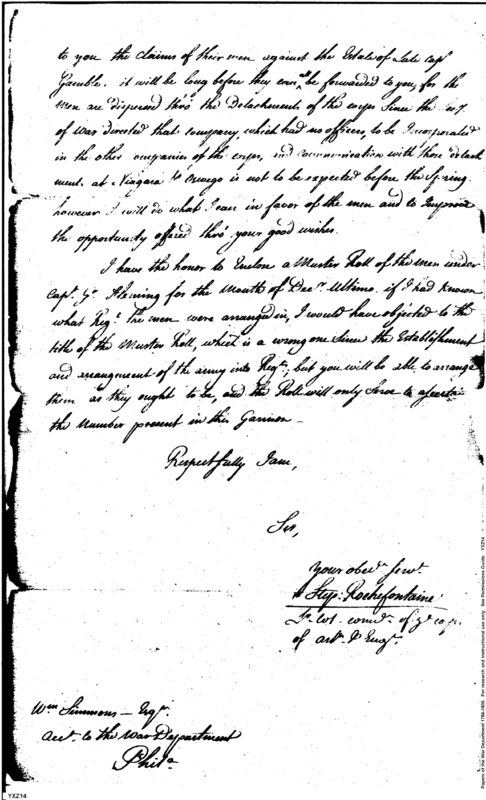 to you the claims of their men against the Estate of Late Capt
Gamble. it will be long before they can be forwarded to you, for the
men are dispersed thro' the Detachments of the corps Since the Secy
of War directed that company, which had no officers, to be Incorporated
in the other companies of the corps, and communication with those detach
ment at Niagara & Oswego is not to be expected before the Spring.
however I will do what I can in favor of the men and to Improve
the opportunity offered thro' your good wishes.
I have the honor to Enclose a Muster Roll of the men under
Capt. Gs. Fleming for the Month of Decr Ultimo. if I had known
what Regt. The men were arranged in, I would have objected to the
title of the Muster Roll, which is a wrong one Since the Establishment
and arrangement of the army into Regts, but you will be able to arrange
them as they ought to be, and the Roll will only Serve to ascertain
the Number present in this Garrison —
Respectfully I am,
Sir,
your obedt Servt
Step. Rochefontaine
Lt. Col. comdt. of ye corps
of arty & Engrs.
Wm Simmons — Esqr
acct. to the War Department
Phila
YXZ14
Papers of the War Department 1784-1800. For research and instructional use only. See Permissions Guide. YXZ14